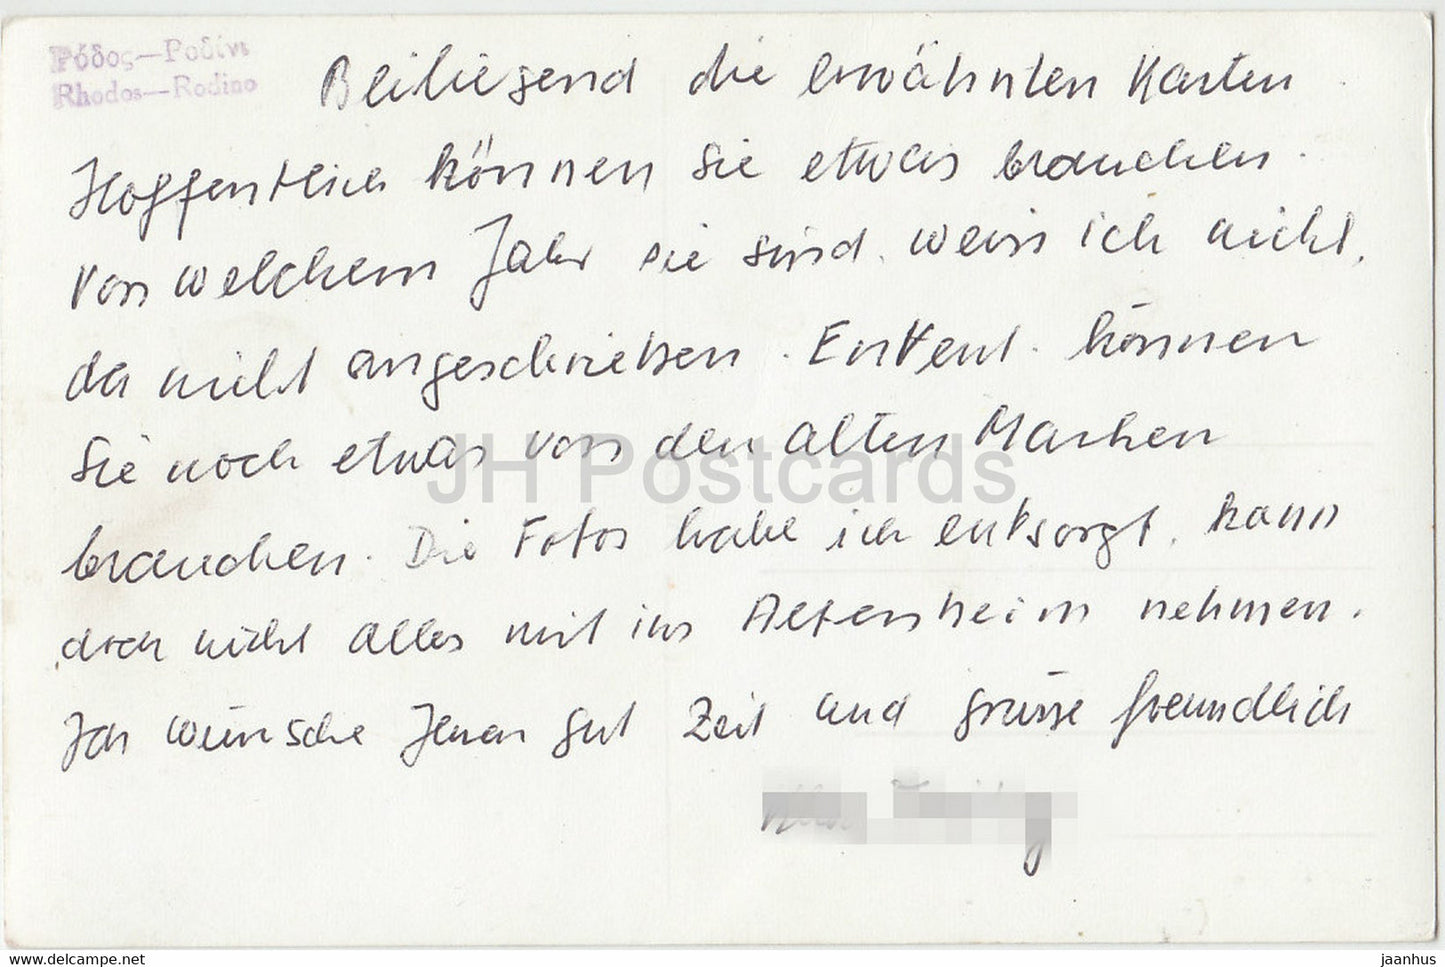 Ρόδος—Ροδίνι
Rhodos—Rodino
Beiliegend die erwähnten Karten
Hoffentlich können Sie etwas brauchen.
Von welchem Jahr sie sind, weiss ich nicht,
da nicht angeschrieben. Eventl. können
Sie noch etwas von den alten Marken
brauchen. Die Fotos habe ich entsorgt, kann
doch nicht alles mit ins Altersheim nehmen.
Ich wünsche Ihnen gut Zeit und grüsse freundlich
JH Postcards
www.delcampe.net
jaanhus